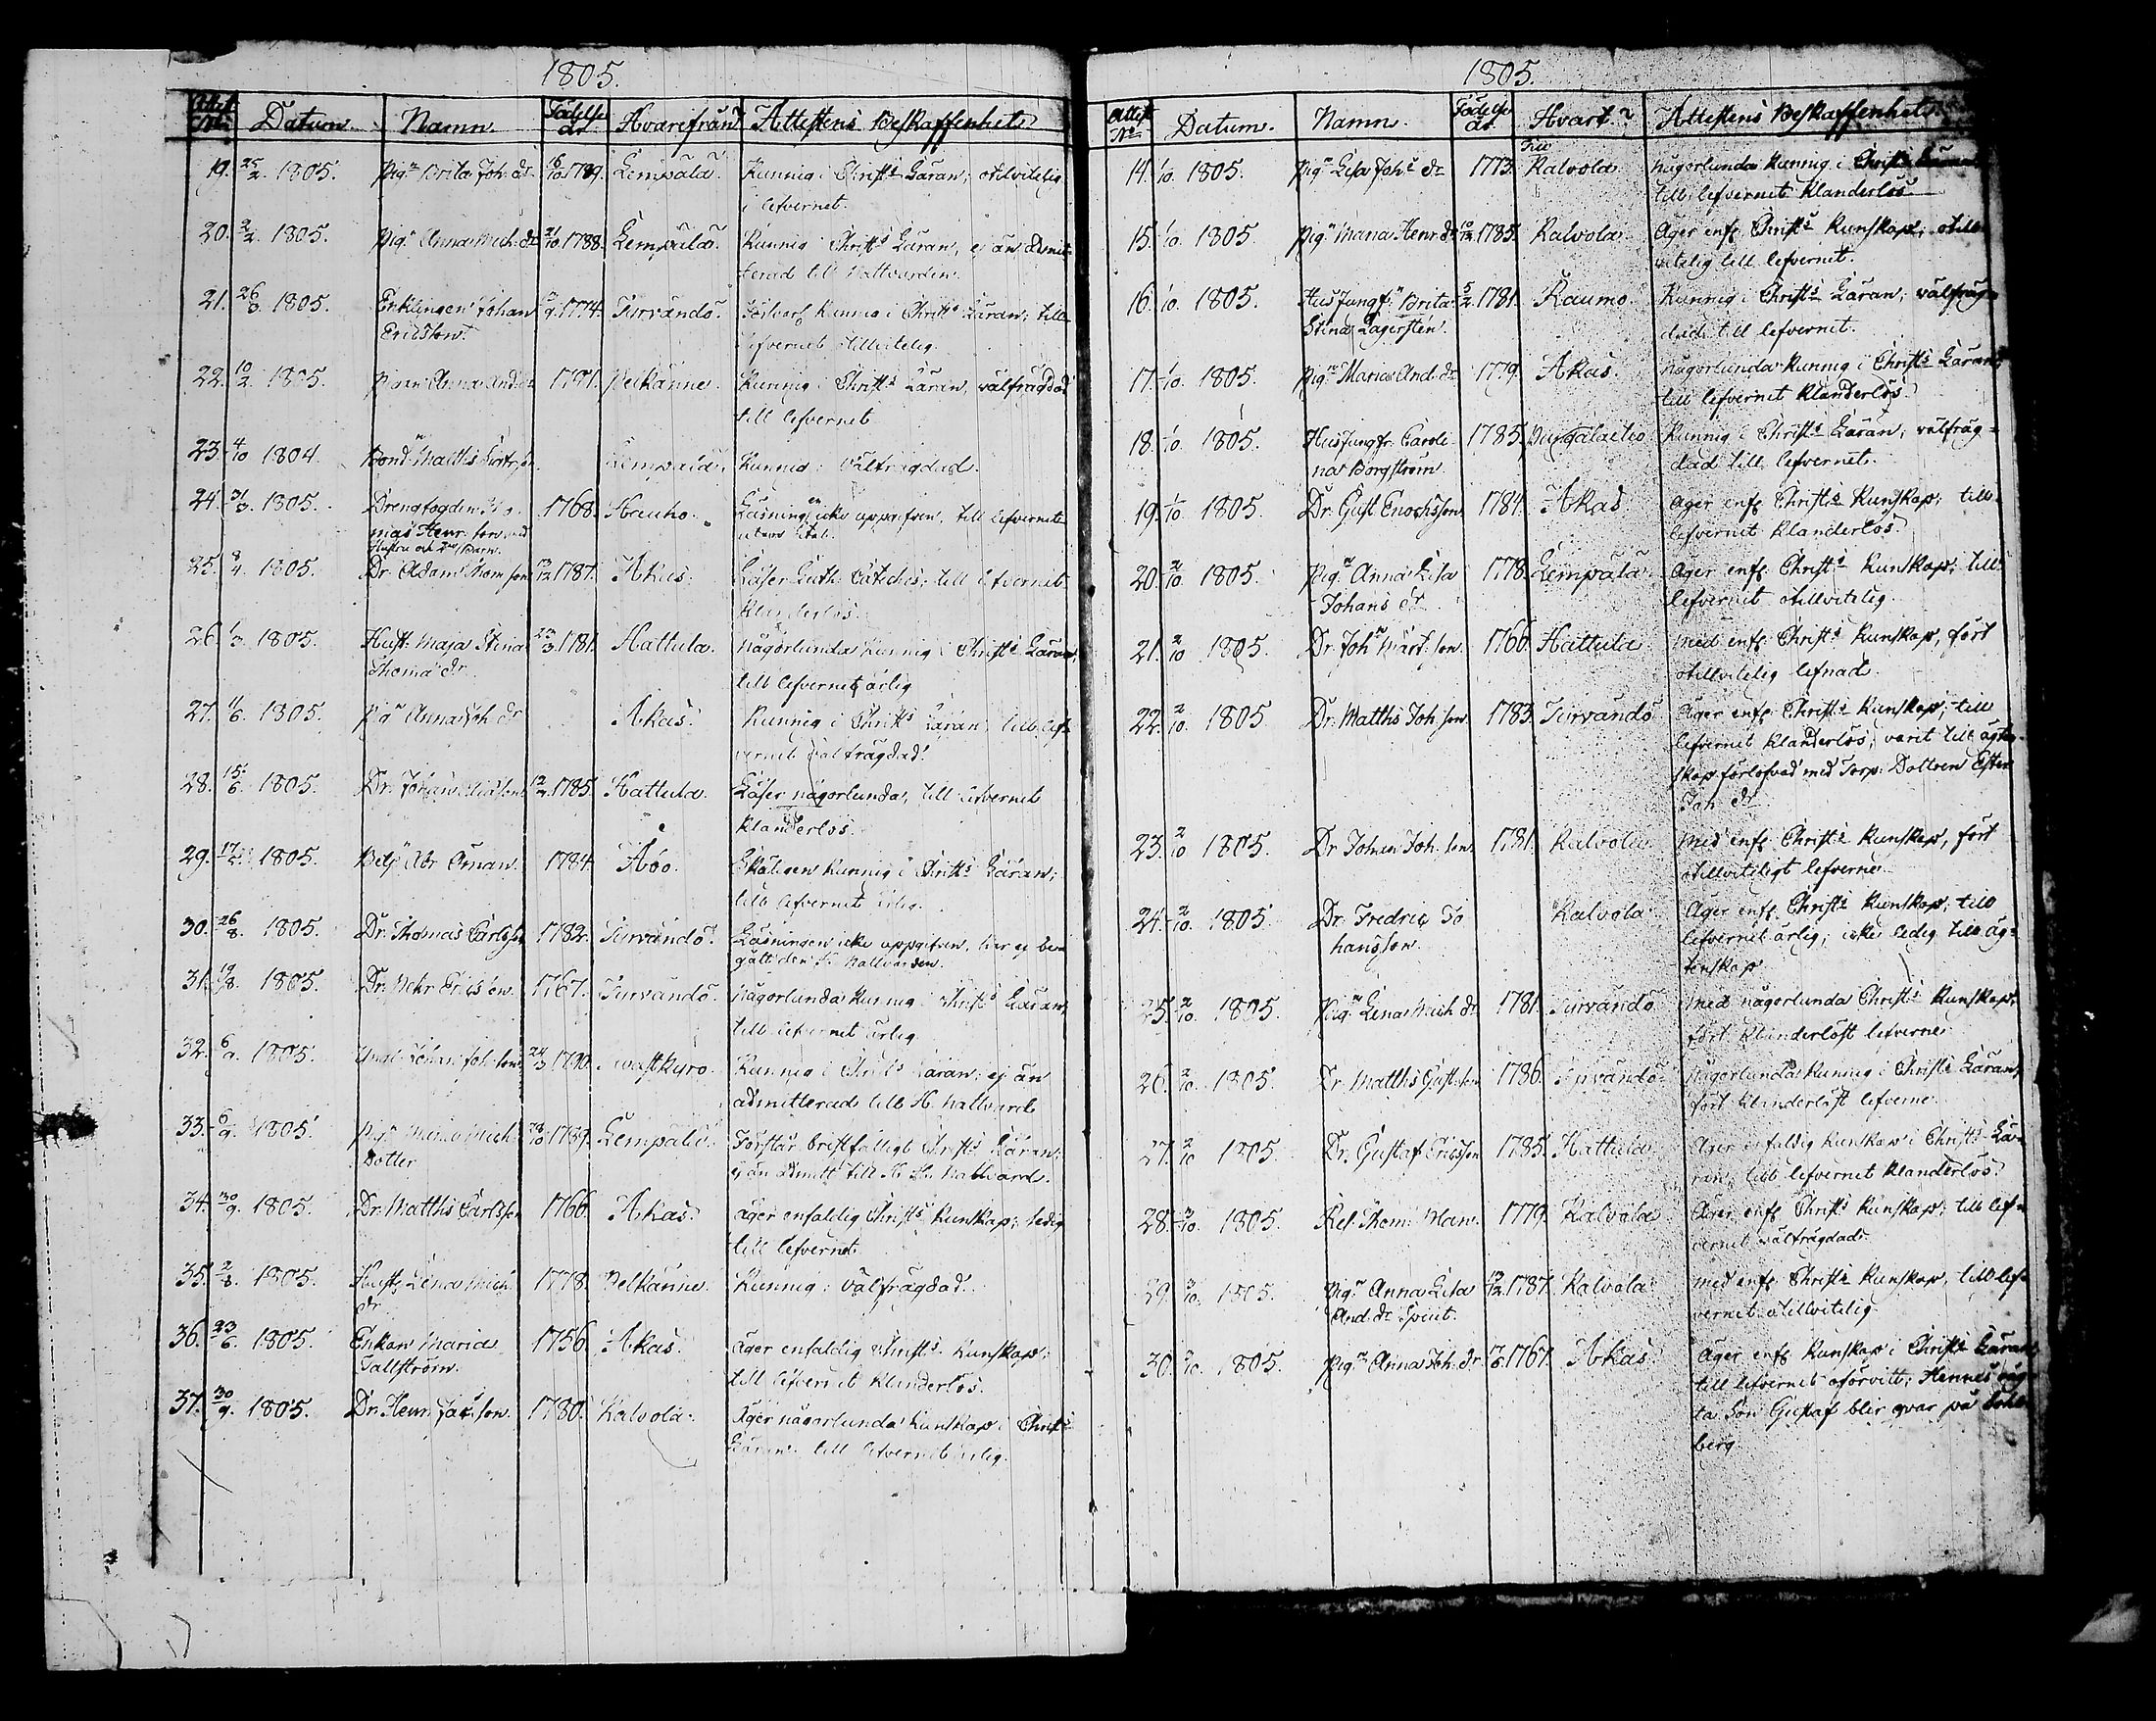 1805.
Attest No Datum. Namn. Födelse år. Hvarifrån Attestens Beskaffenhet
19. 25/2. 1805. Pig:n Brita Joh: dr 16/10 1789. Lempälä. Kunnig i Christ:s Läran; otilvitelig
i lefvernet.
20. 2/2. 1805. Pig:n Anna Mich: dr 21/10 1788. Lempälä. Kunnig i Christ:s Läran, ej än admit-
terad till Nattvarden.
21. 26/3. 1805. Enklingen Johan 1774. Turvändo. kunnig i Christ:s Läran; till
Ericsson. lefvernet otillvitelig.
22. 10/2. 1805. Pigan Anna And: dr 1781. Pelkänne. Kunnig i Christ:s Läran, välfrägdad
till lefvernet
23. 4/10 1804. Bond: Matths Lempälä. Kunnig: välfrägdad.
24. 31/3. 1805. Drengfogden Tho- 1768. Hauho. Läsningen icke uppgifven, till lefvernet
mas Henr: son med utan
Hustru och Barn.
25. 8/4. 1805. Dr. Adam Thom: son 1787. Akas. Läser Luth: Catches; till lefvernet
klanderlös.
26. 1/3. 1805. Hust: Maja Stina 23/3. 1781. Hattula. någorlunda kunnig i Christ:s Läran
Thoma dr. till lefvernet ärlig
27. 11/6. 1805. Pig:n Anna Joh: dr Akas. Kunnig i Christ:s Läran, till lef-
vernet välfrägdad.
28. 15/6. 1805. Dr. Johan 12/2. 1785. Hattula. Läser någorlunda, till lefvernet
klanderlös.
29. 17/5. 1805. Betj: Abr Öman. 1784. Åbo. Skäligen kunnig i Christ:s Läran;
till lefvernet ärlig.
30. 26/8. 1805. Dr. Thomas Carlsson 1782. Turvändo. Läsningen icke uppgifven, har ej be-
gått den H. Nattvarden.
31. 19/8. 1805. Dr. Ericson. 1767. Turvändo. Någorlunda kunnig i Christ:s Läran,
till lefvernet ärlig.
32. 6/9. 1805. Johan Joh: son 24/3 1790. Kunnig i Christ:s Läran; ej än
admitterad till H. Nattvard
33. 6/9. 1805. Pig:n Maria Mich: 1789. Lempälä. Förstår bristfälligt Christ:s Läran;
Dotter ej än admitt: till H. Nattvard.
34. 30/9. 1805. Dr. Matths Carlsson 1766. Akas. äger enfaldig Christ:s kunskap; ledig
till lefvernet
35. 2/8. 1805. Hustr: Lena Mich: 1778. Pelkänne. Kunnig: välfrägdad.
dr
36. 23/6. 1805. Enkan Maria 1756. Akas. äger enfaldig Christ:s kunskap:
Tallström. till lefvernet klanderlös.
37. 30/9. 1805. Dr. Henr: Jac: son. 1780. Kalvola. Äger någorlunda kunskap i Christ:s
Läran: till lefvernet ärlig.
1805.
Attest No Datum. Namn. Födelse år. Hvart? Attestens Beskaffenhet.
14. 1/10. 1805. Pig:n Lisa Joh:s dr 1773. Kalvola någorlunda kunnig i Christ:s Läran
till lefvernet klanderlös
15. 1/10. 1805. Pig:n Maria Henr: dr 1785. Kalvola. Äger enf: Christ:s kunskap; otill-
vitelig till lefvernet.
16. 1/10. 1805. HusJungf:n Brita 5/2. 1781. Raumo. Kunnig i Christ:s Läran; välfräg-
Stina Lagersten. dad till lefvernet.
17. 1/10. 1805. Pig:n Maria And: dr 1779. Akas. Någorlunda kunnig i Christ:s Läran;
till lefvernet klanderlös.
18. 1/10. 1805. HusJungfr. Caroli- 1785. Kunnig i Christ:s Läran; välfräg-
na Borgström. dad till lefvernet.
19. 1/10. 1805. Dr. Gust: Enochsson 1784. Akas. Äger enf: Christ:s Kunskap; till
lefvernet klanderlös.
20. 2/10 1805. Pig:n Anna Lisa 1778. Lempälä. Äger enf: Christ:s kunskap; till
Johans dr lefvernet otillvitelig.
21. 2/10 1805. Dr. Joh:n Mårt: son. 1766. Hattula med enf: Christ:s kunskap, fört
otillvitelig lefnad.
22. 2/10. 1805 Dr. Matths Joh: son. 1783. Turvändo Äger enf: Christ:s kunskap; till
lefvernet klanderlös; varit till ägten-
skap förlofvad med Torp: Dottren Ester
Joh: dr
23. 2/10 1805. Dr Johan Joh: son 1781. Kalvola Med enf: Christ:s kunskap, fört
otillviteligt lefverne
24. 2/10. 1805. Dr. Fredric Jo Kalvola Äger enf: Christ:s kunskap; till
hansson. lefvernet ärlig; icke ledig till äg-
tenskap
25. 2/10. 1805. Pig:n Lena Mich: dr 1781. Turvändo med någorlunda Christ:s kunskap,
fört klanderlöst lefverne.
26. 2/10. 1805. Dr. Matths Gust: son 1786. Turvändo Någorlunda kunnig i Christ:s Läran,
fört klanderlöst lefverne.
27. 2/10 1805. Dr. Gustaf Ericsson 1785. Hattula Äger enfaldig kunskap i Christ:s Lä-
ran, till lefvernet klanderlös.
28. 3/10. 1805. Thom: 1779. Kalvola Äger enf: Christ:s kunskap; till lef-
vernet välfrägdad.
29. 3/10. 1805. Pig:n Anna Lisa 1787. Kalvola med enf: Christ:s kunskap, till lef-
And: dr vernet otillvitelig.
30. 1805. Pig:n Anna Joh: dr 1767. Akas. Äger enf: kunskap i Christ:s Läran
till lefvernet oförvitt; Hennes
ta Son Gustaf blir qvar på
berg.